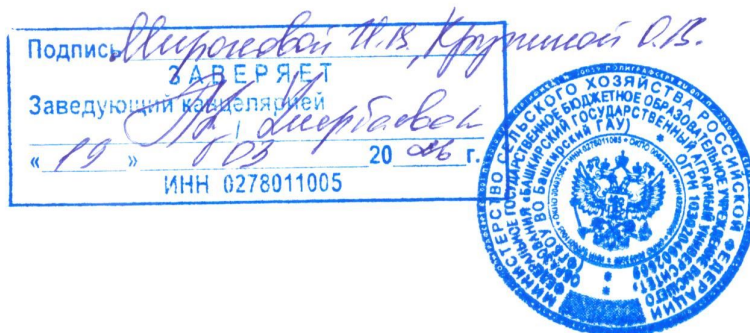 Подпись Мироновой И.В., Кружиной О.В.
ЗАВЕРЯЕТ
Заведующий канцелярией
« 19 » 03 20 26 г.
ИНН 0278011005
МИНИСТЕРСТВО СЕЛЬСКОГО ХОЗЯЙСТВА РОССИЙСКОЙ ФЕДЕРАЦИИ
ФЕДЕРАЛЬНОЕ ГОСУДАРСТВЕННОЕ БЮДЖЕТНОЕ ОБРАЗОВАТЕЛЬНОЕ УЧРЕЖДЕНИЕ ВЫСШЕГО
ОБРАЗОВАНИЯ «БАШКИРСКИЙ ГОСУДАРСТВЕННЫЙ АГРАРНЫЙ УНИВЕРСИТЕТ»
(ФГБОУ ВО Башкирский ГАУ)